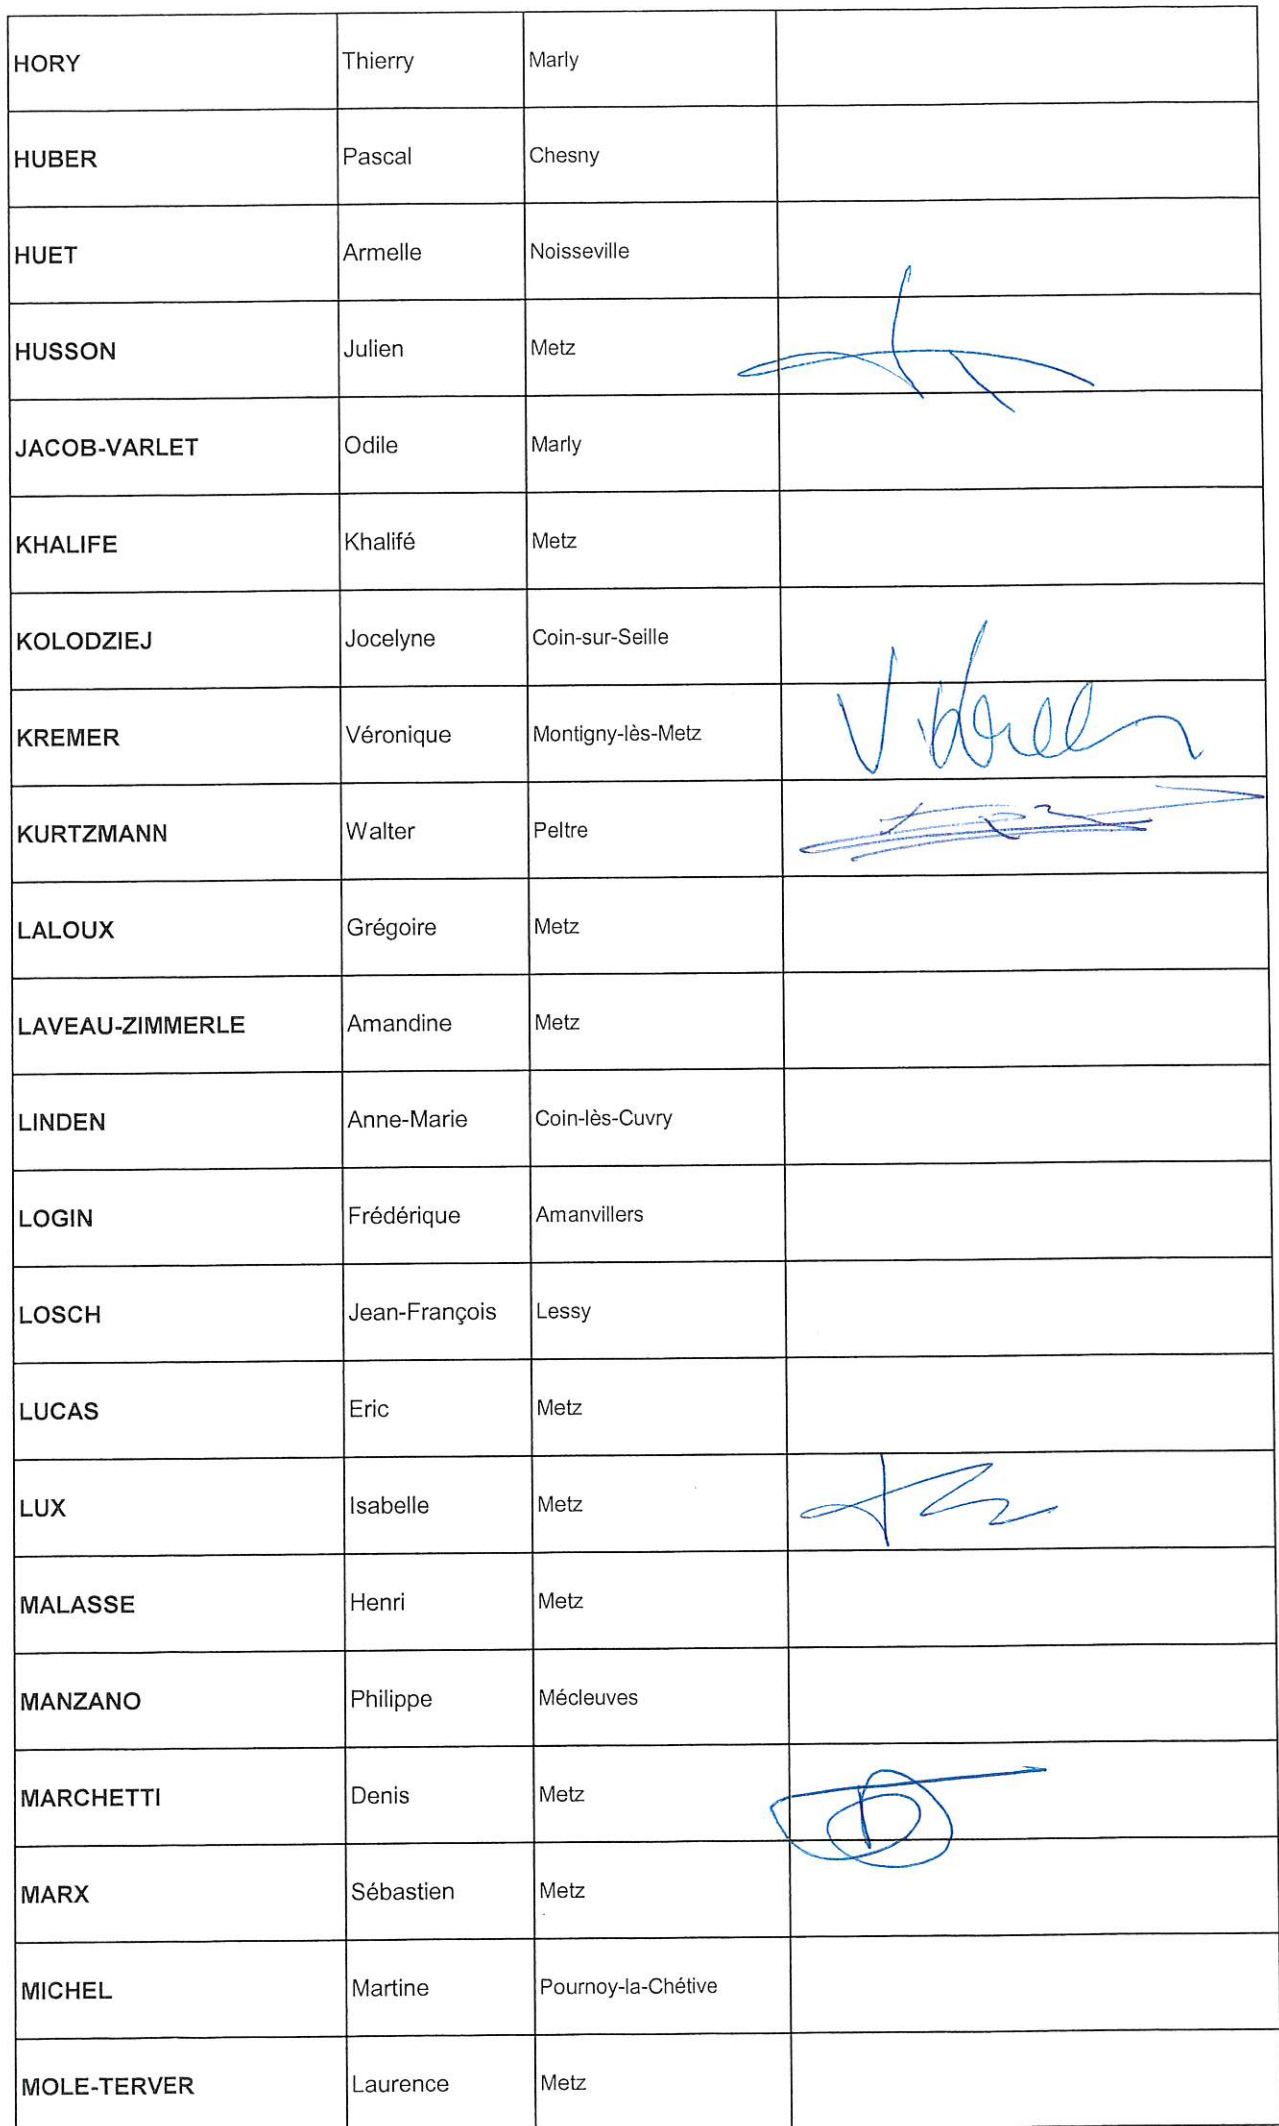 HORY Thierry Marly
HUBER Pascal Chesny
HUET Armelle Noisseville
HUSSON Julien Metz
JACOB-VARLET Odile Marly
KHALIFE Khalifé Metz
KOLODZIEJ Jocelyne Coin-sur-Seille
KREMER Véronique Montigny-lès-Metz
KURTZMANN Walter Peltre
LALOUX Grégoire Metz
LAVEAU-ZIMMERLE Amandine Metz
LINDEN Anne-Marie Coin-lès-Cuvry
LOGIN Frédérique Amanvillers
LOSCH Jean-François Lessy
LUCAS Eric Metz
LUX Isabelle Metz
MALASSE Henri Metz
MANZANO Philippe Mécleuves
MARCHETTI Denis Metz
MARX Sébastien Metz
MICHEL Martine Pournoy-la-Chétive
MOLE-TERVER Laurence Metz